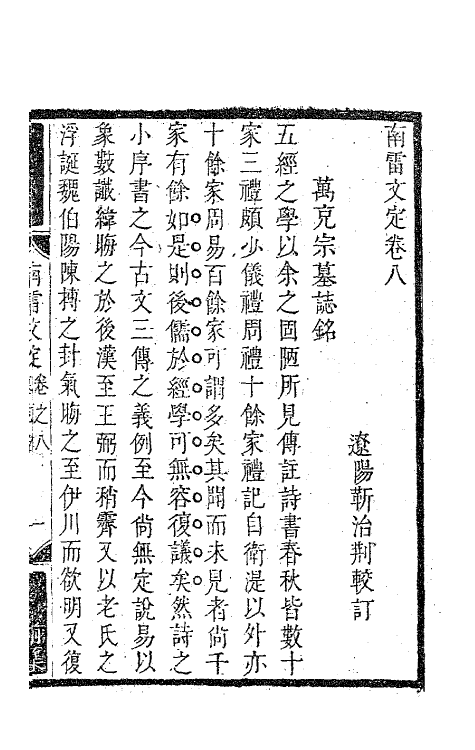 南雷文定卷八
遼陽靳治荆較訂
萬充宗墓誌銘
五經之學以余之固陋所見傳註詩書春秋皆數十
家三禮頗少儀禮周禮十餘家禮記自衛湜以外亦
十餘家周易百餘家可謂多矣其聞而未見者尚千
家有餘如是則後儒於經學可無容復議矣然詩之
小序書之今古文三傳之義例至今尚無定說易以
象數讖緯晦之於後漢至王弼而稍霽又以老氏之
浮誕魏伯陽陳摶之卦氣晦之至伊川而欲明又復
南雷文定 卷之八 一